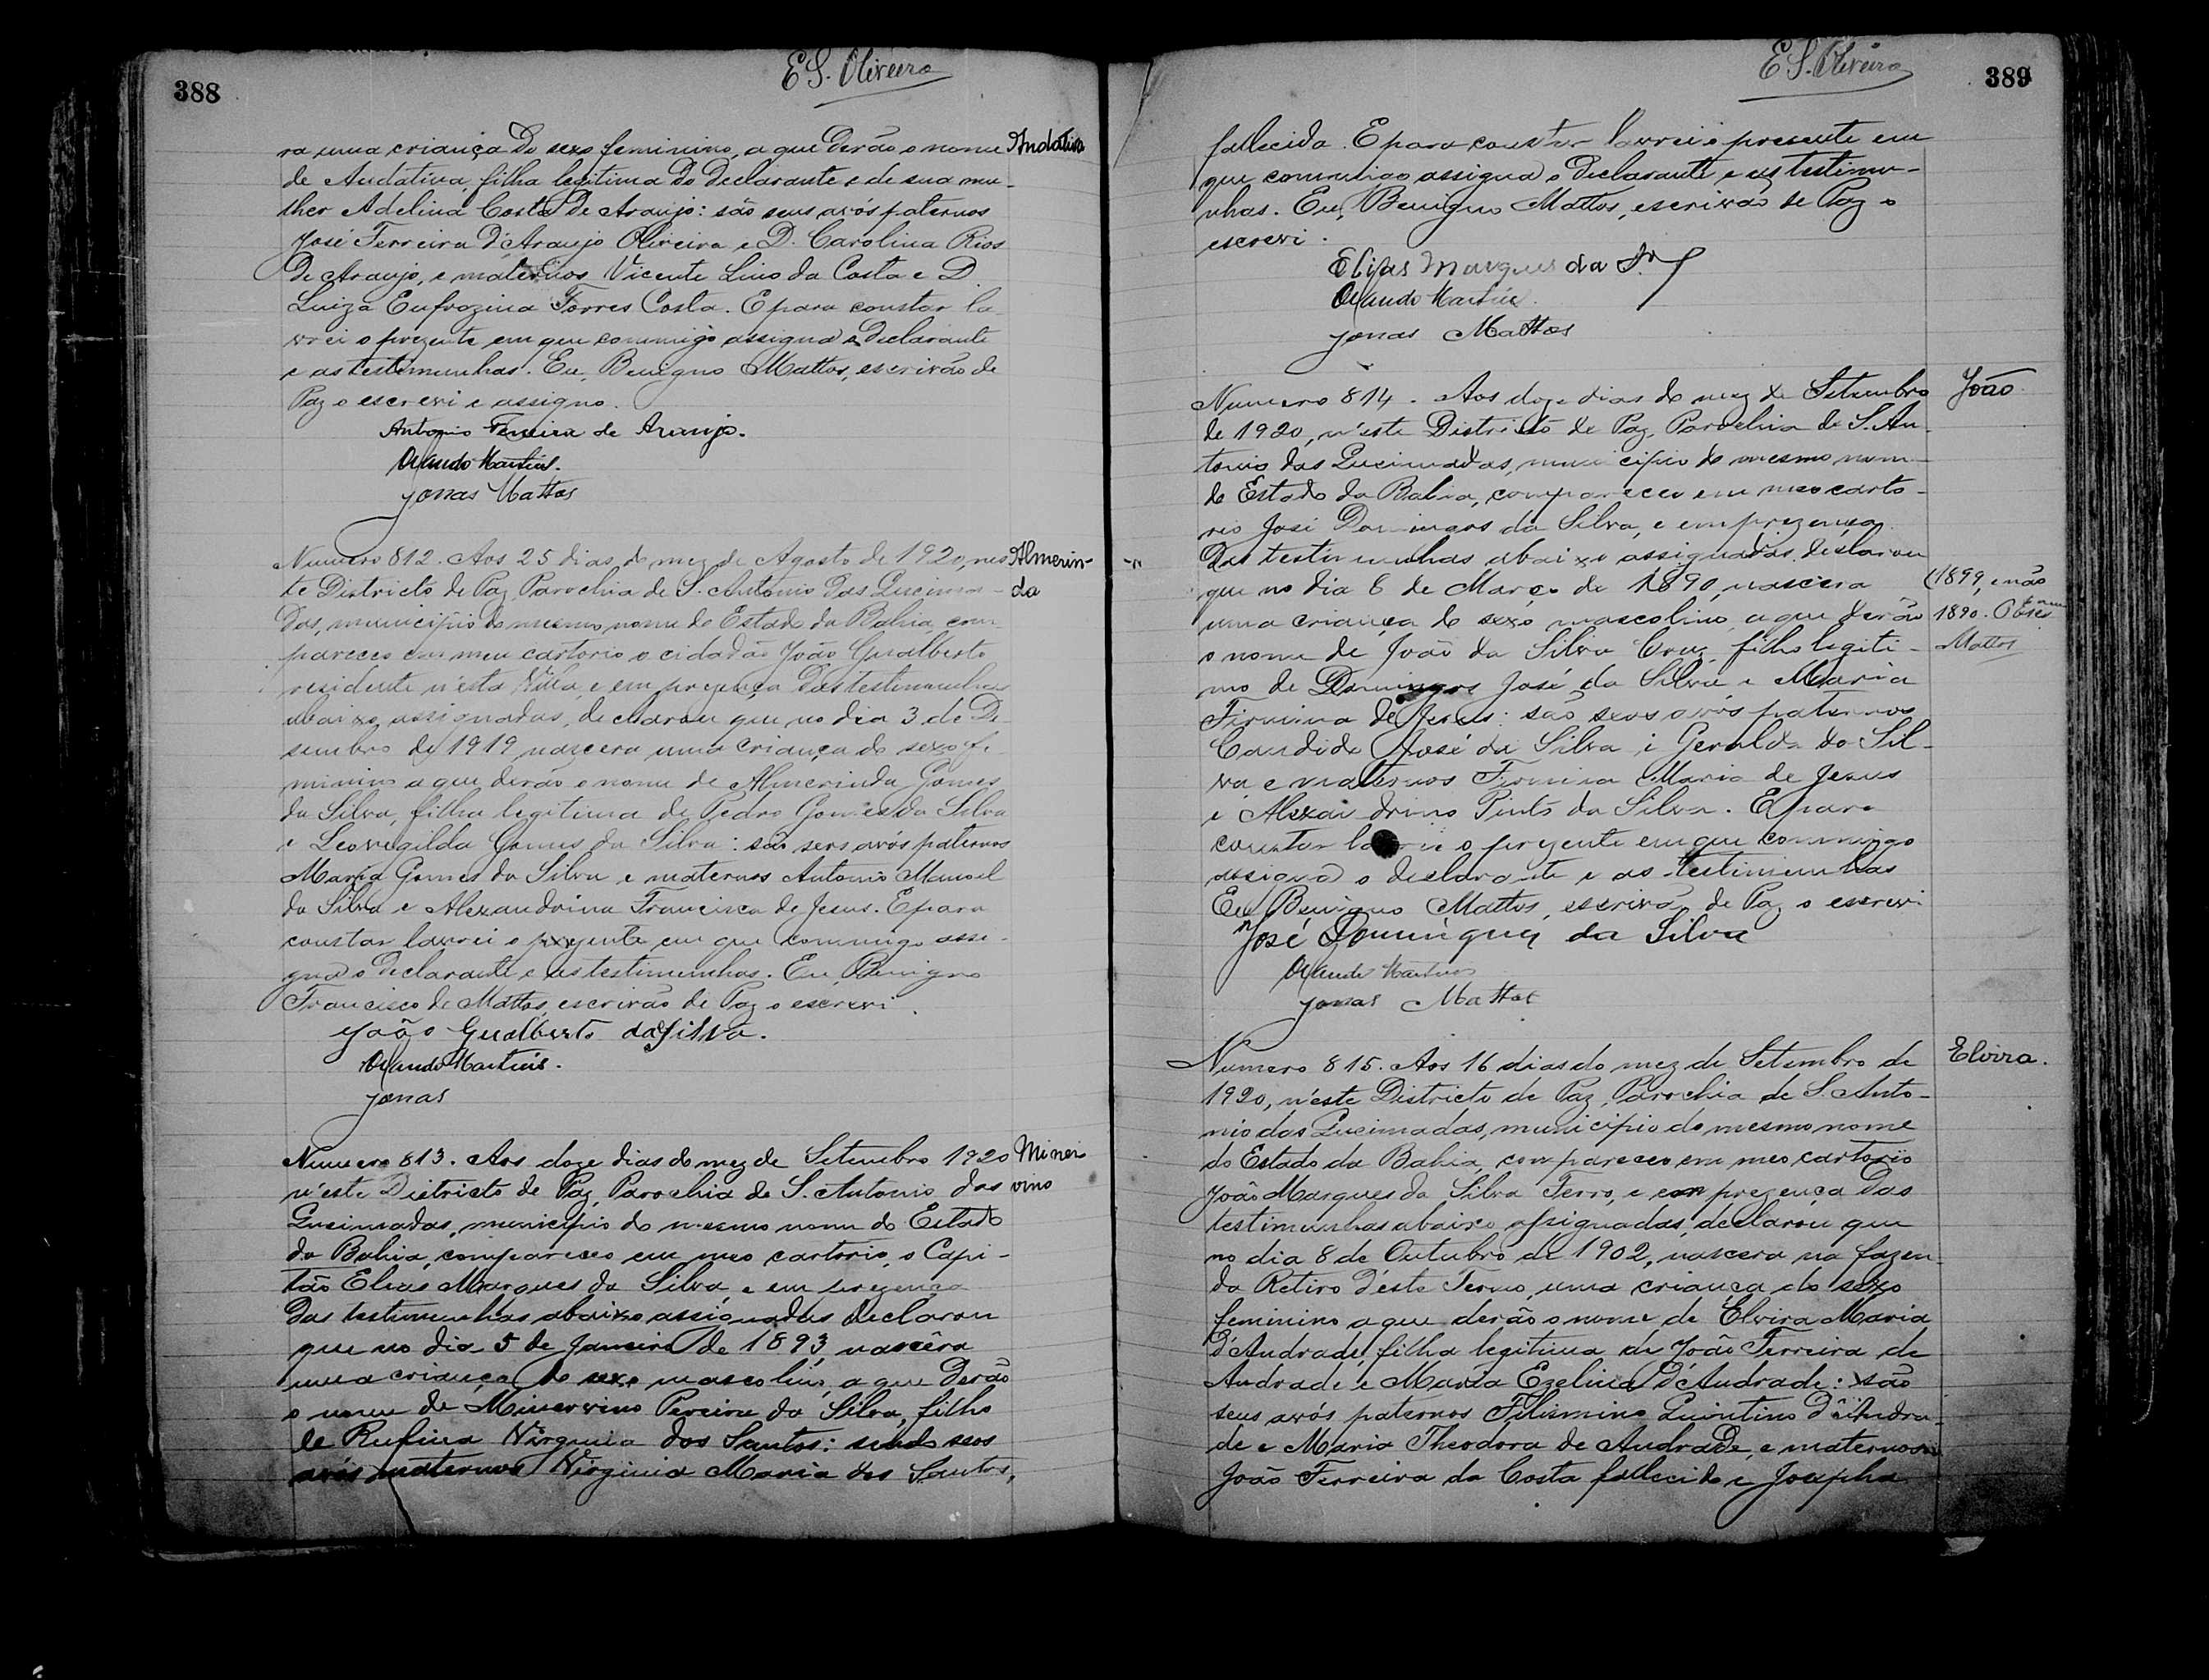 388
E S. Oliveira
ra uma criança do sexo feminino, a que derão o nome
Andativa
de Andativa, filha legitima do declarante e de sua mu-
lher Adelina Costa de Araujo: são seus avós paternos
José Ferreira d'Araujo Oliveira e D. Carolina Rios
de Araujo, e maternos Vicente Lino da Costa e D.
Luiza Eufrozina Torres Costa. E para constar la-
vrei o prezente em que commigo assigna o declarante
e as testemunhas. Eu, Benigno Mattos, escrivão de
Paz o escrevi e assigno.
Antonio Ferreira de Araujo.
Orlando Martins.
Jonas Mattos
Numero 812. Aos 25 dias do mez de Agosto de 1920, nes
Almerin-
da
te Districto de Paz, Parochia de S. Antonio das Queima-
das, municipio do mesmo nome do Estado da Bahia, com
pareceo em meu cartorio o cidadão João Gualberto
residente n'esta Villa, e em prezença das testimunhas
abaixo assignadas, declarou que no dia 3 de De-
sembro de 1919 nascera uma criança do sexo fe
minino a que derão o nome de Almerinda Gomes
da Silva, filha legitima de Pedro Gomes da Silva
e Leovegilda Gomes da Silva: são seus avós paternos
Maria Gomes da Silva e maternos Antonio Manoel
da Silva e Alexandrina Francisca de Jesus. E para
constar lavrei o prezente em que commigo assi-
gna o declarante e as testimunhas. Eu, Benigno
Francisco de Mattos, escrivão de Paz o escrevi.
João Gualberto da Silva.
Orlando Martins.
Jonas
Numero 813. Aos doze dias do mez de Setembro 1920
Miner
vino
n'este Districto de Paz, Parochia de S. Antonio das
Queimadas, municipio do mesmo nome do Estado
da Bahia, compareceo em meo cartorio, o Capi-
tão Elias Marques da Silva, e em prezença
das testimunhas abaixo assignadas declarou
que no dia 5 de Janeiro de 1893 nascêra
uma criança do sexo masculino, a que derão
o nome de Minervino Pereira da Silva, filho
de Rufina Virginia dos Santos: sendo seos
avós maternos Virginia Maria dos Santos,
E S. Oliveira
389
fallecida. E para constar lavrei o presente em
que commigo assigna o declarante e as testimu-
nhas. Eu, Benigno Mattos, escrivão de Paz o
escrevi.
Elias Marques da Sª
Orlando Martins.
Jonas Mattos
Numero 814. Aos doze dias do mez de Setembro
João
de 1920, n'este Districto de Paz, Parochia de S. An-
tonio das Queimadas, municipio do mesmo nome
do Estado da Bahia, compareceo em meo carto-
rio José Domingos da Silva, e em prezença
das testimunhas abaixo assignadas declarou
que no dia 6 de Março de 1890, nascera
(1899, e não
1890.
Mattos
uma criança do sexo mascolino a que derão
o nome de João da Silva Cruz, filho legiti-
mo de Domingos José da Silva e Maria
Firmina de Jesus: são seus avós paternos
Candido José da Silva e Geralda da Sil-
va e maternos Firmina Maria de Jesus
e Alexandrino Pinto da Silva. E para
constar lavrei o prezente em que commigo
assigna o declarante e as testimunhas
Eu Benigno Mattos, escrivão de Paz o escrevi
José Domingues da Silva
Orlando Martins
Jonas Mattos
Numero 815. Aos 16 dias do mez de Setembro de
Elvira.
1920, n'este Districto de Paz, Parochia de S. Anto-
nio das Queimadas, municipio do mesmo nome
do Estado da Bahia, compareceo em meo cartorio
João Marques da Silva Ferro, e em prezença das
testimunhas abaixo assignadas, declarou que
no dia 8 de Outubro de 1902, nascera na fazen-
da Retiro d'este Termo, uma criança do sexo
feminino a que derão o nome de Elvira Maria
d'Andrade, filha legitima de João Ferreira de
Andrade e Maria Ezelina d'Andrade: são
seus avós paternos Filismino Quintino d'Andra-
de e Maria Theodora de Andrade, e maternos
João Ferreira da Costa fallecido e Josepha